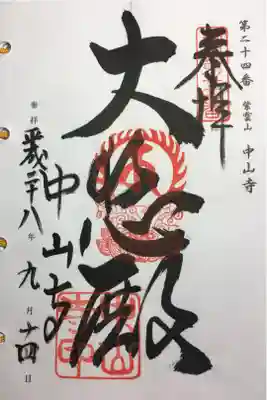 第二十四番 紫雲山 中山寺
奉拝
大悲殿
中山寺
参拝 平成二十八年 九月 十四日